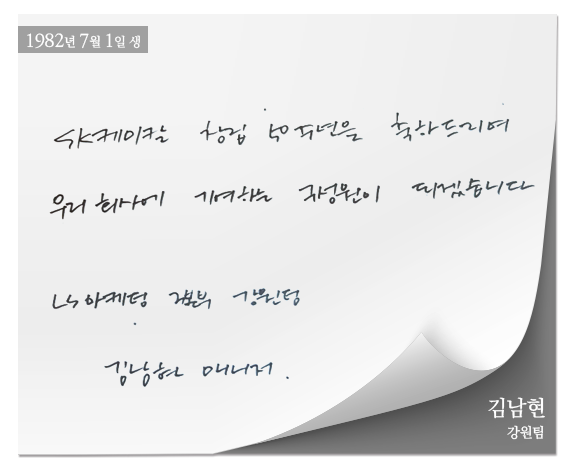 1982년 7월 1일 생
SK케미칼 창립 50주년을 축하드리며
우리 회사에 기여하는 구성원이 되겠습니다
LS 마케팅 본부 강원팀
김남현 매니저.
김남현
강원팀